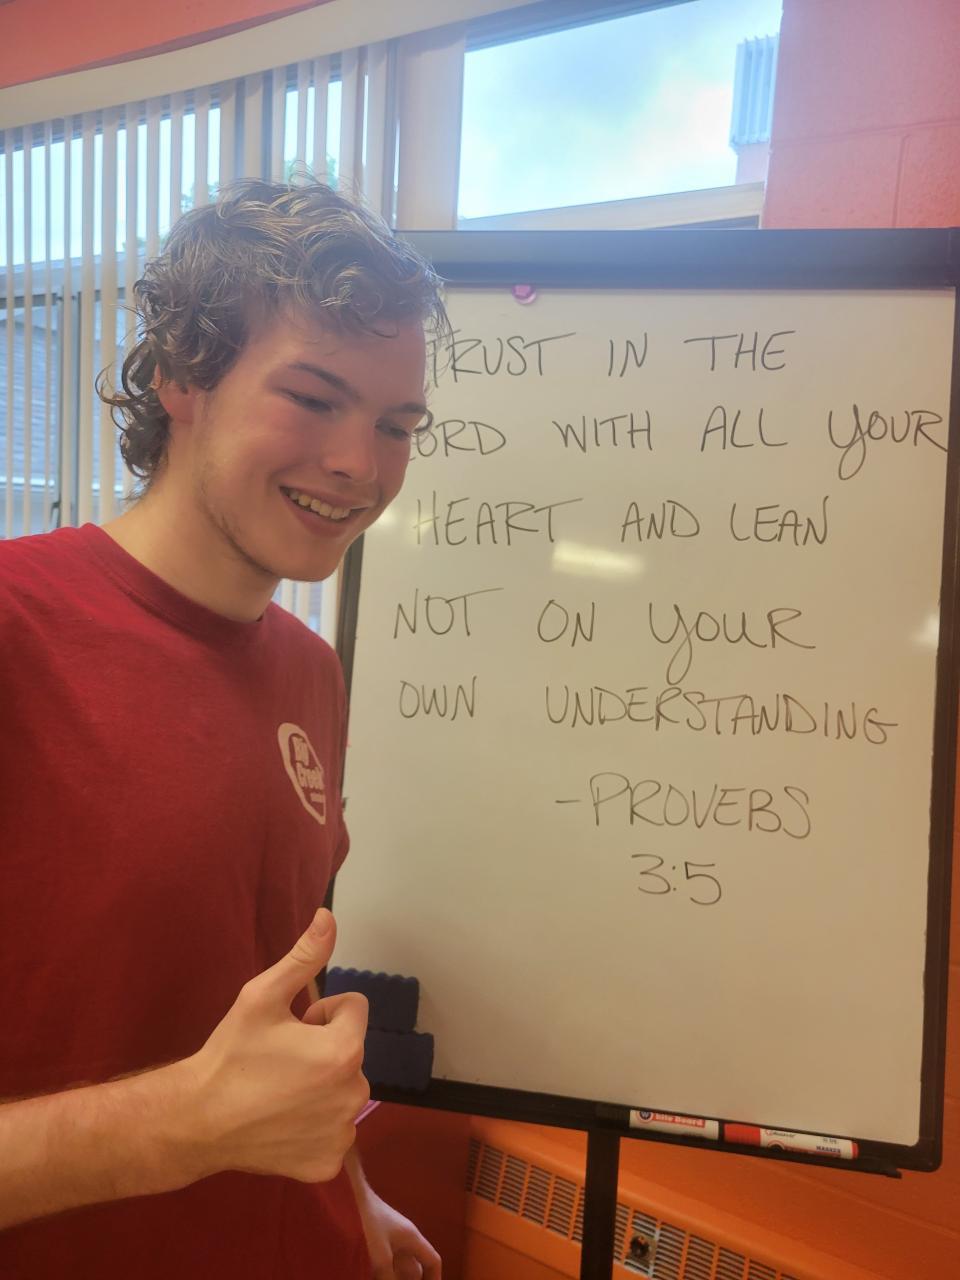 TRUST IN THE
LORD WITH ALL YOUR
HEART AND LEAN
NOT ON YOUR
OWN UNDERSTANDING
-PROVEBS
3:5
Big
Creek